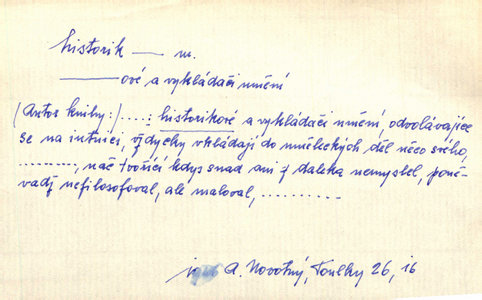 historik — m.
——ové a vykládači umění
(Autor knihy:) ....: historikové a vykládači umění, odvolávajíce
se na intuici, vždycky vkládají do uměleckých děl něco svého,
.........., nač tvořící kdys snad ani z daleka nemyslel, poně-
vadž nefilosofoval, ale maloval, ..........
A. Novotný, Toulky 26, 16